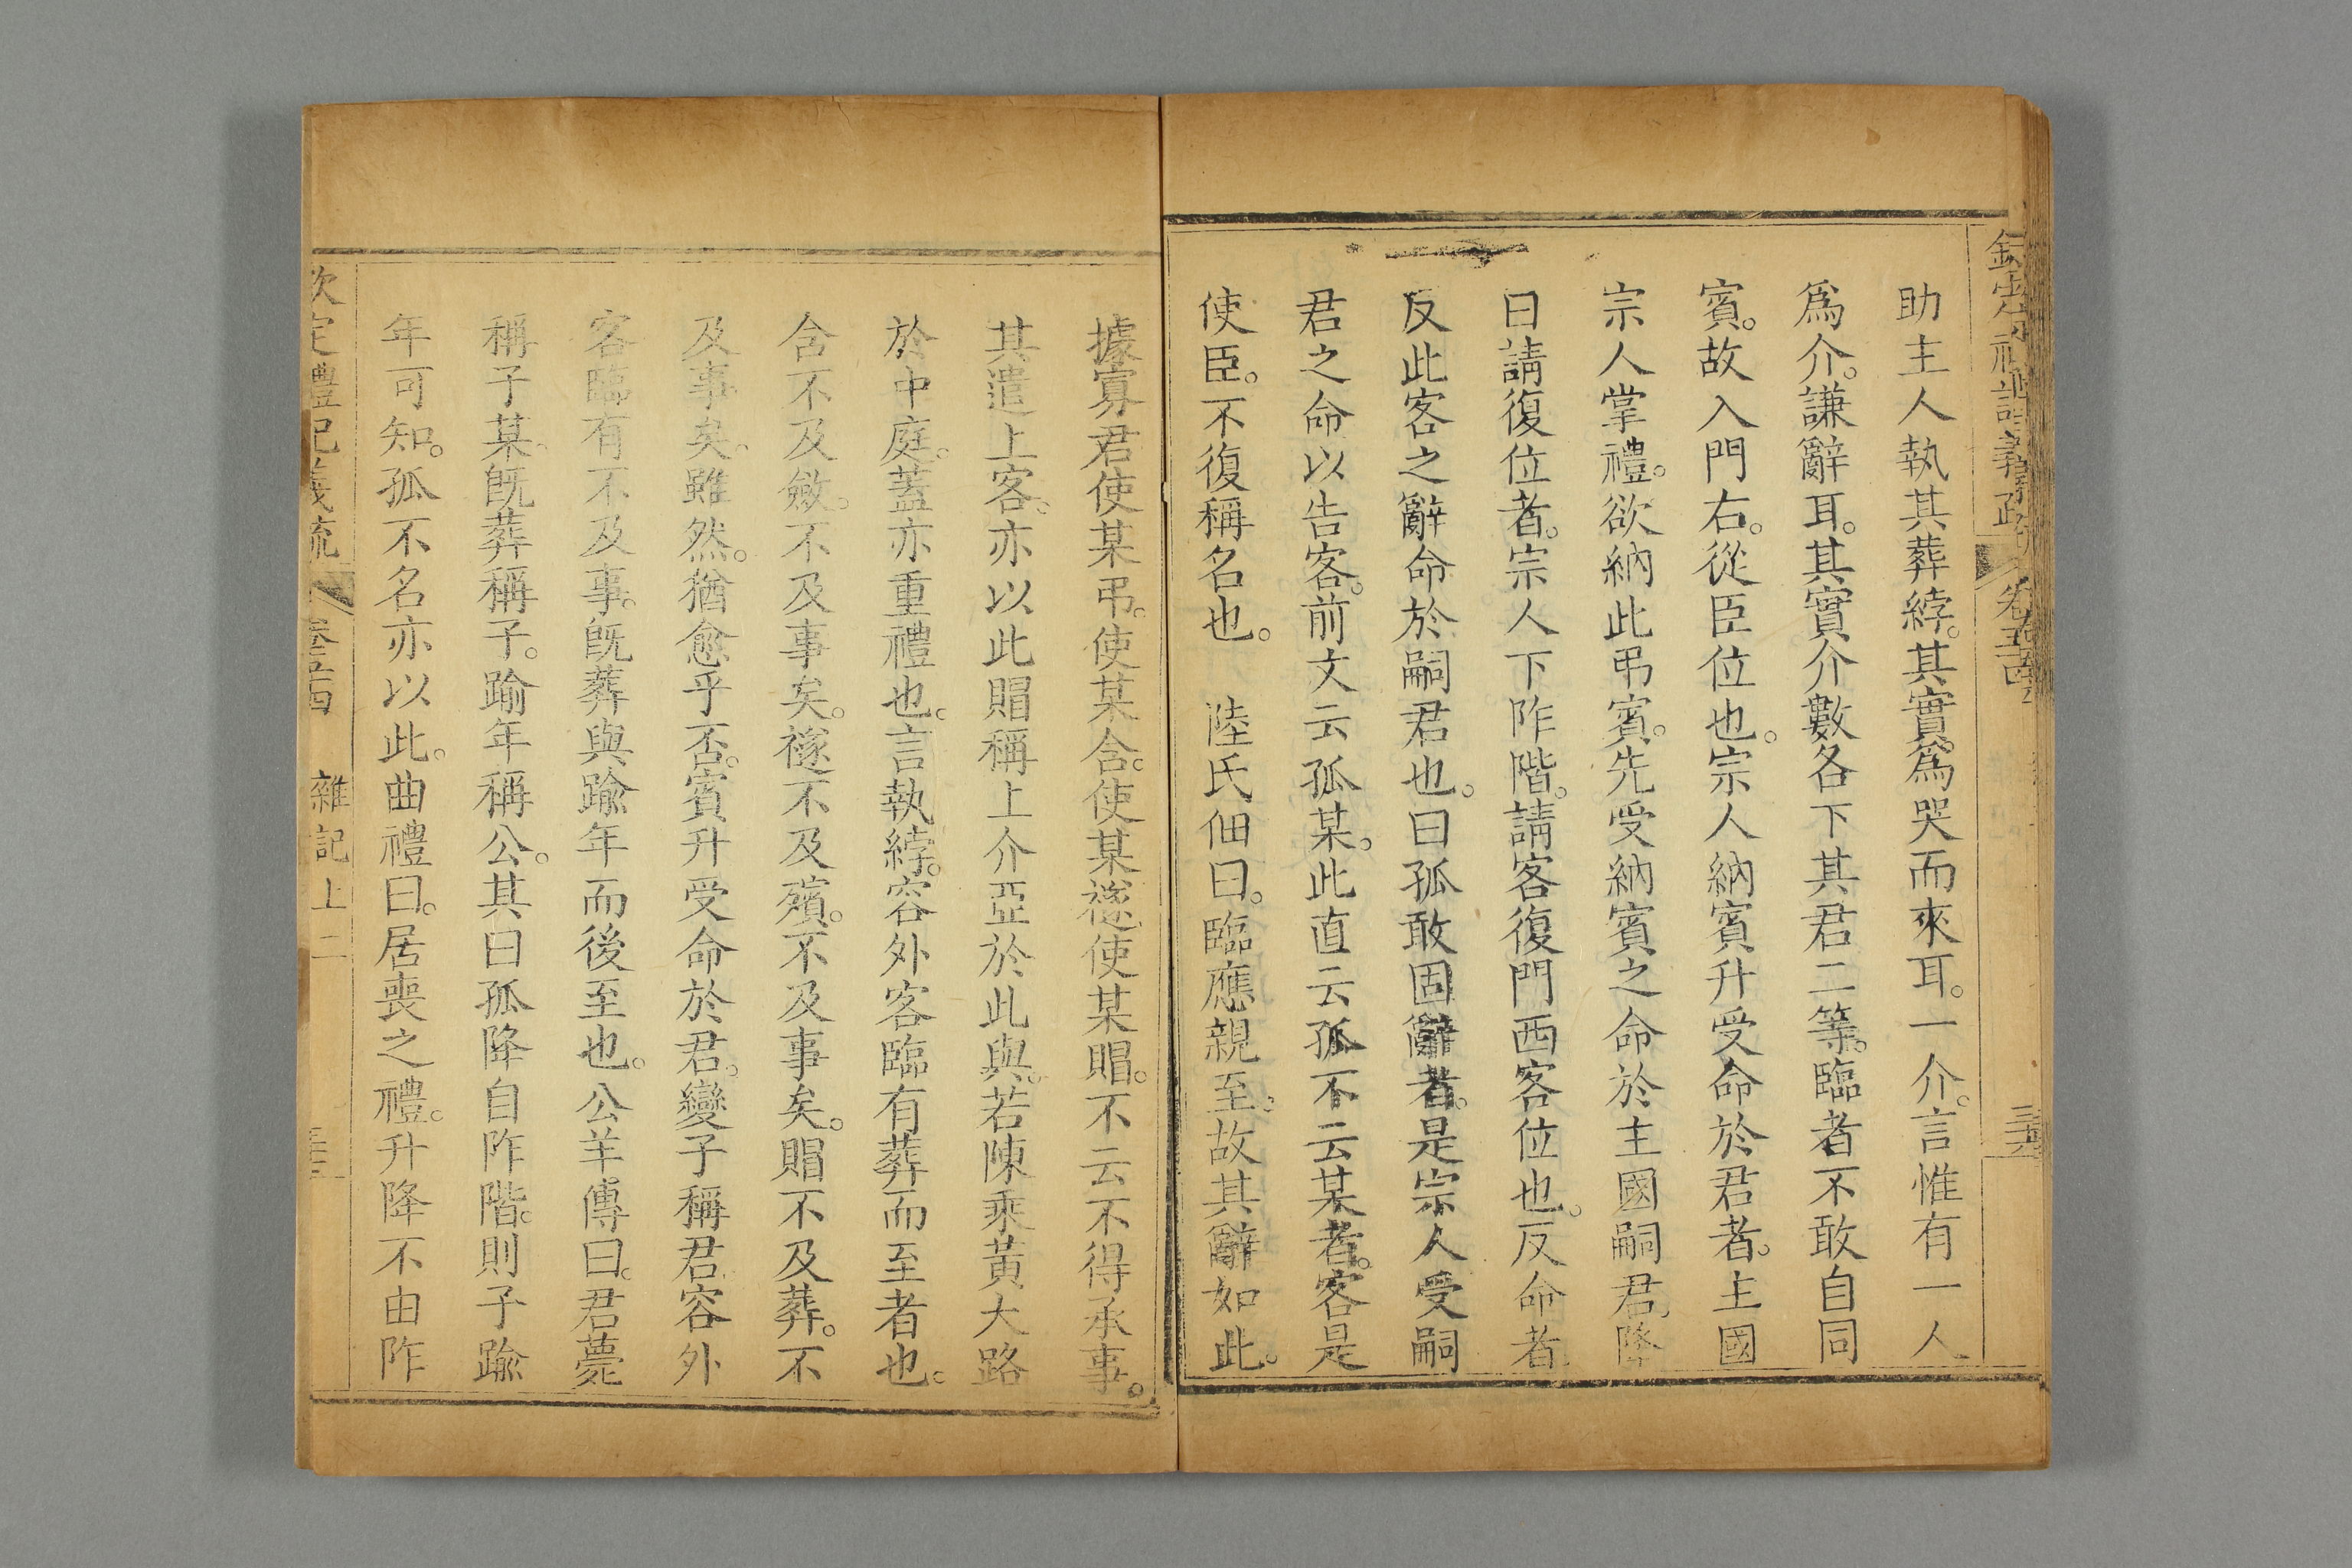 助主人執其葬綍。其實爲哭而來耳。一介。言惟有一人
爲介。謙辭耳。其實介數各下其君二等。臨者不敢自同
賓。故入門右。從臣位也。宗人納賓升受命於君者。主國
宗人掌禮。欲納此弔賓。先受納賓之命於主國嗣君。降
曰請復位者。宗人下阼階。請客復門西客位也。反命者
反此客之辭命於嗣君也。曰孤敢固辭者。是宗人受嗣
君之命以告客。前文云孤某。此直云孤不云某者。客是
使臣。不復稱名也。　陸氏佃曰。臨應親至。故其辭如此。
據寡君使某弔。使某含。使某襚。使某賵。不云不得承事。
其遣上客。亦以此賵稱上介亞於此與。若陳乘黃大路
於中庭。蓋亦重禮也。言執綍。容外客臨有葬而至者也。
含不及斂。不及事矣。襚不及殯。不及事矣。賵不及葬。不
及事矣。雖然。猶愈乎否。賓升受命於君。變子稱君。容外
客臨有不及事。旣葬與踰年而後至也。公羊傳曰。君薨
稱子某。旣葬稱子。踰年稱公。其曰孤降自阼階。則子踰
年可知。孤不名亦以此。曲禮曰。居喪之禮。升降不由阼
欽定禮記義疏
雜記上二